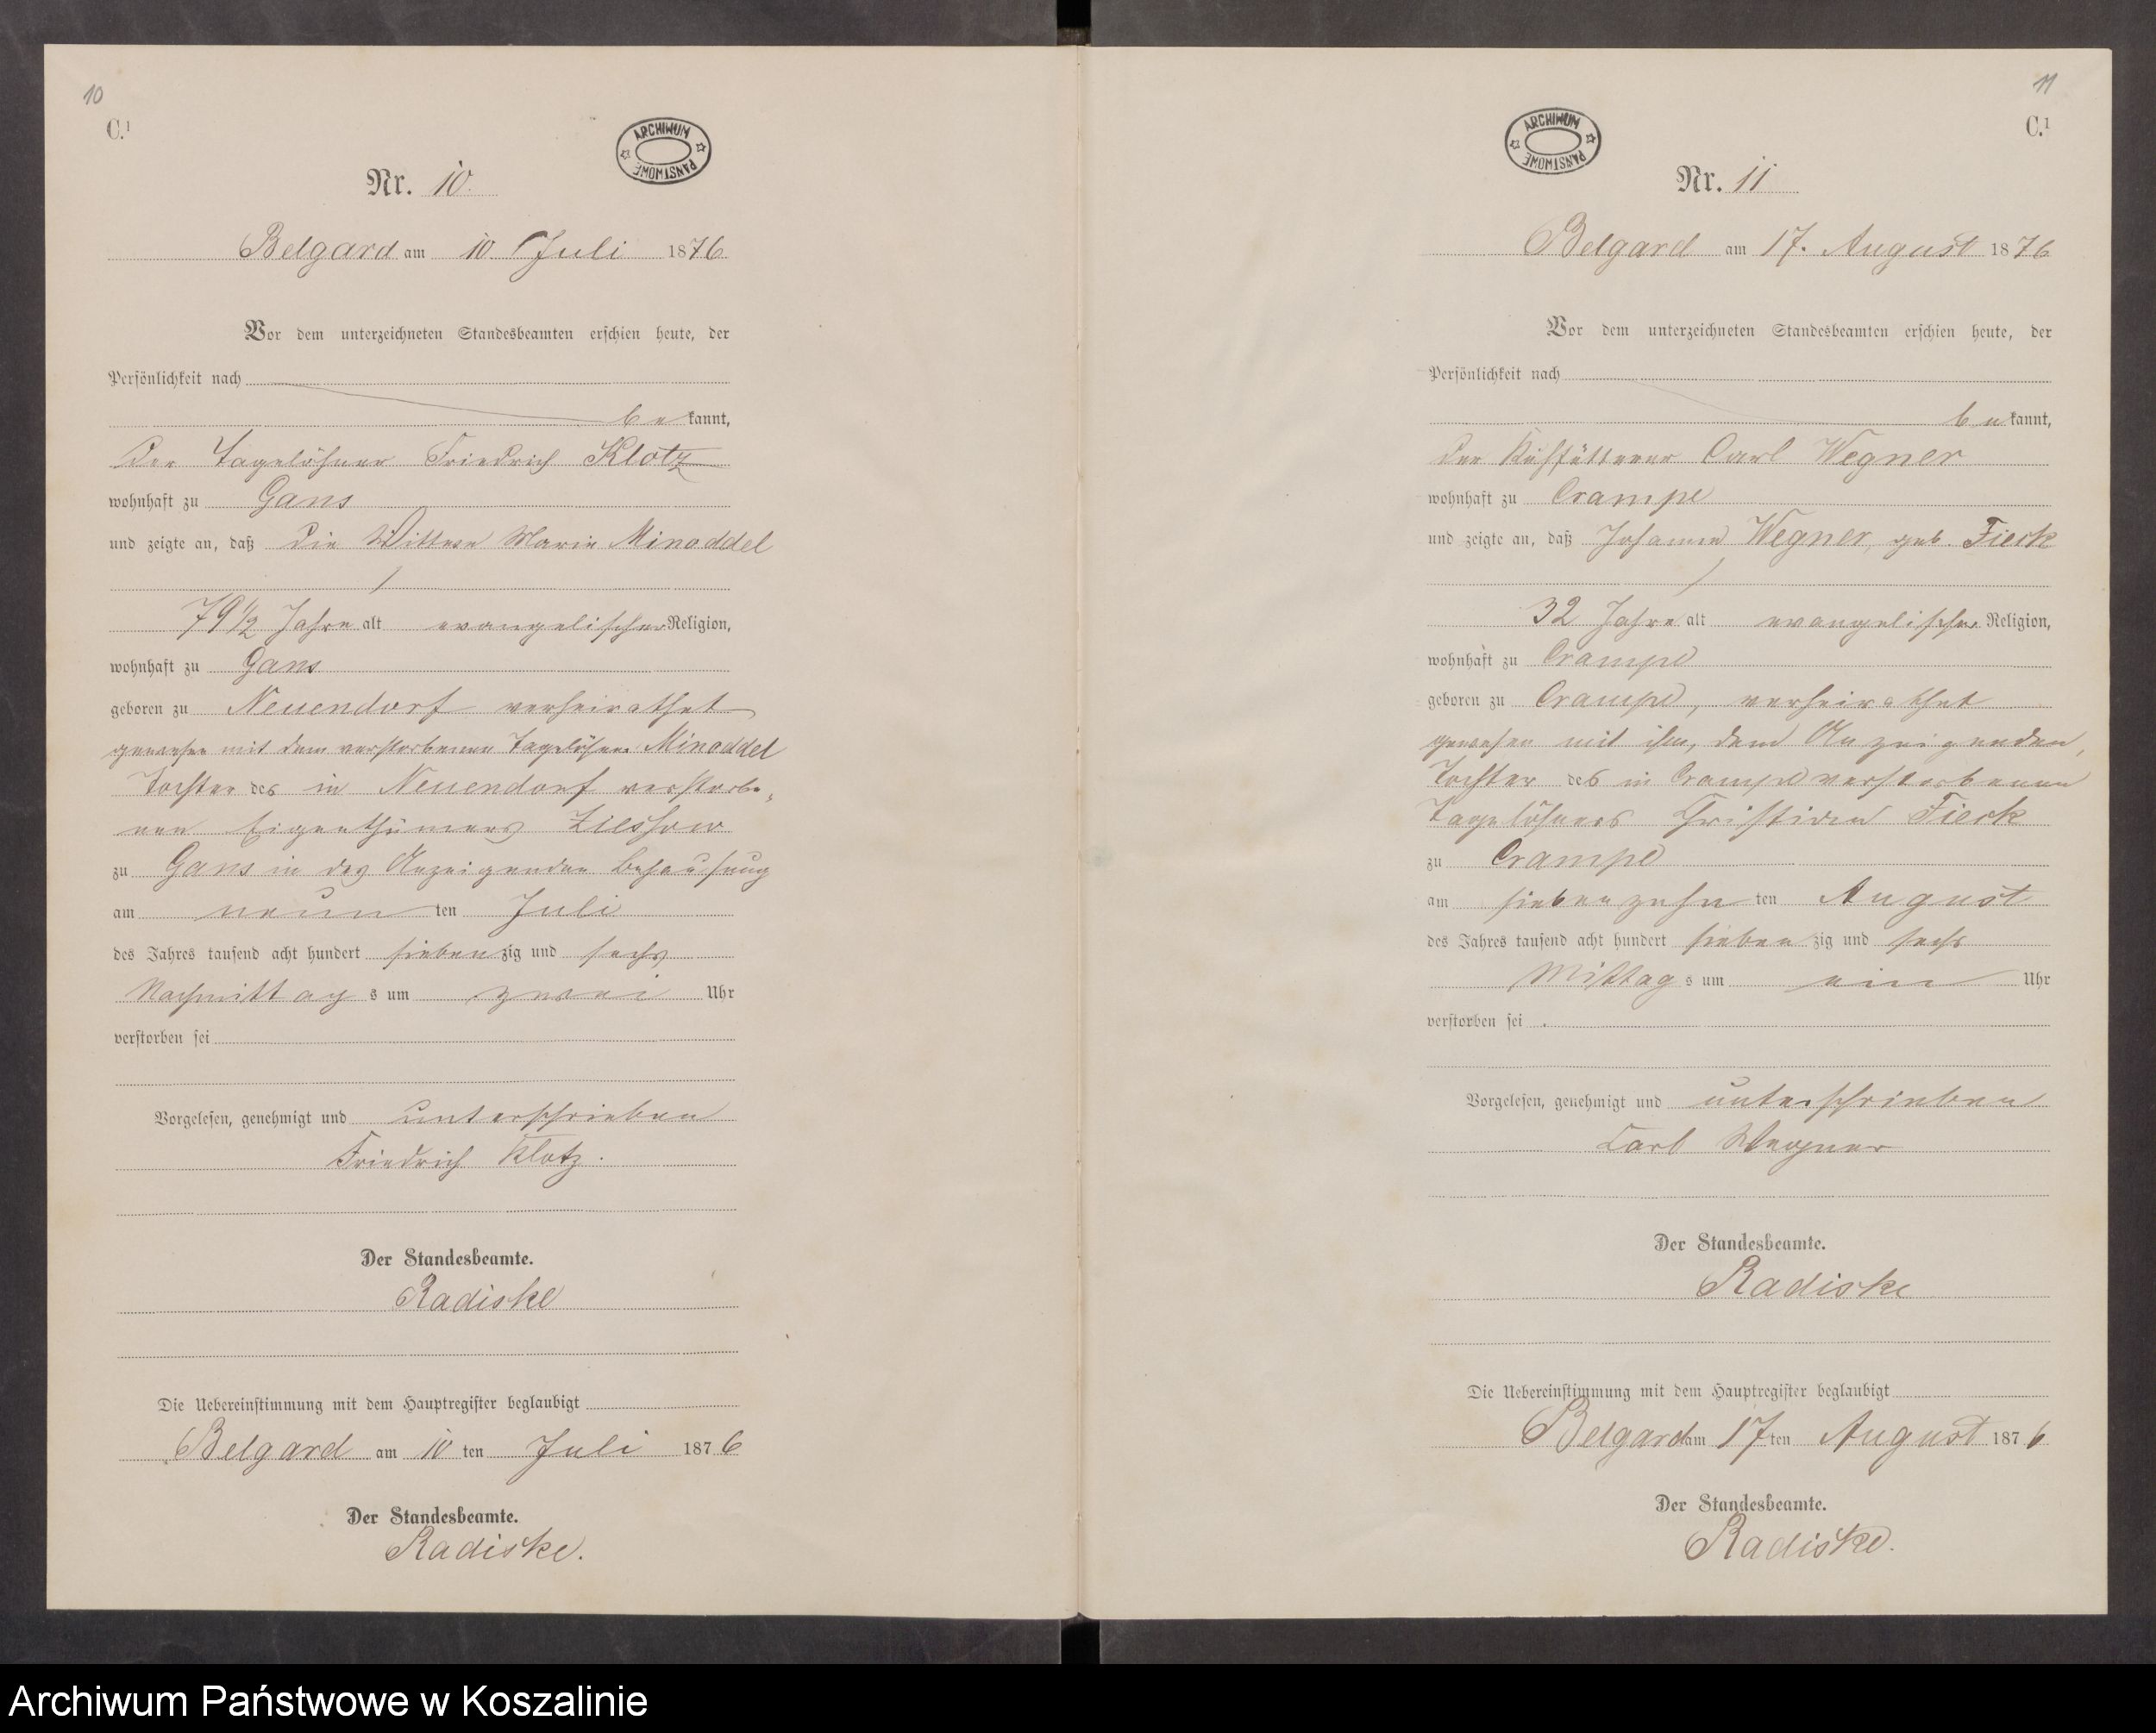 10
C.¹
ARCHIWUM PAŃSTWOWE
Nr. 10.
Belgard am 10 Juli 1876
Vor dem unterzeichneten Standesbeamten erschien heute, der
Persönlichkeit nach
bekannt,
der Tagelöhner Friedrich Klotz
wohnhaft zu Gans
und zeigte an, daß die Wittwe Marie Minoddel
79 1/2 Jahre alt evangelischer Religion,
wohnhaft zu Gans
geboren zu Neuendorf verheirathet
gewesen mit dem verstorbenen Tagelöhner Minoddel
Tochter des in Neuendorf verstorbe-
nen Eigenthümers
zu Gans in des Anzeigenden Behausung
am neun ten Juli
des Jahres tausend acht hundert siebenzig und sechs
Nachmittag s um zwei Uhr
verstorben sei
Vorgelesen, genehmigt und unterschrieben
Friedrich Klotz.
Der Standesbeamte.
Radiske
Die Uebereinstimmung mit dem Hauptregister beglaubigt
Belgard am 10 ten Juli 1876
Der Standesbeamte.
Radiske.
11
C.¹
ARCHIWUM PAŃSTWOWE
Nr. 11
Belgard am 17. August 1876
Vor dem unterzeichneten Standesbeamten erschien heute, der
Persönlichkeit nach
bekannt,
der Kuhfütterer Carl Wegner
wohnhaft zu Crampe
und zeigte an, daß Johanne Wegner, geb. Fieck
32 Jahre alt evangelischer Religion,
wohnhaft zu Crampe
geboren zu Crampe, verheirathet
gewesen mit ihm, dem Anzeigenden,
Tochter des in Crampe verstorbenen
Tagelöhners Fieck
zu Crampe
am siebenzehn ten August
des Jahres tausend acht hundert siebenzig und sechs
Mittag s um ein Uhr
verstorben sei
Vorgelesen, genehmigt und unterschrieben
Carl Wegner
Der Standesbeamte.
Radiske
Die Uebereinstimmung mit dem Hauptregister beglaubigt
Belgard am 17 ten August 1876
Der Standesbeamte.
Radiske.
Archiwum Państwowe w Koszalinie